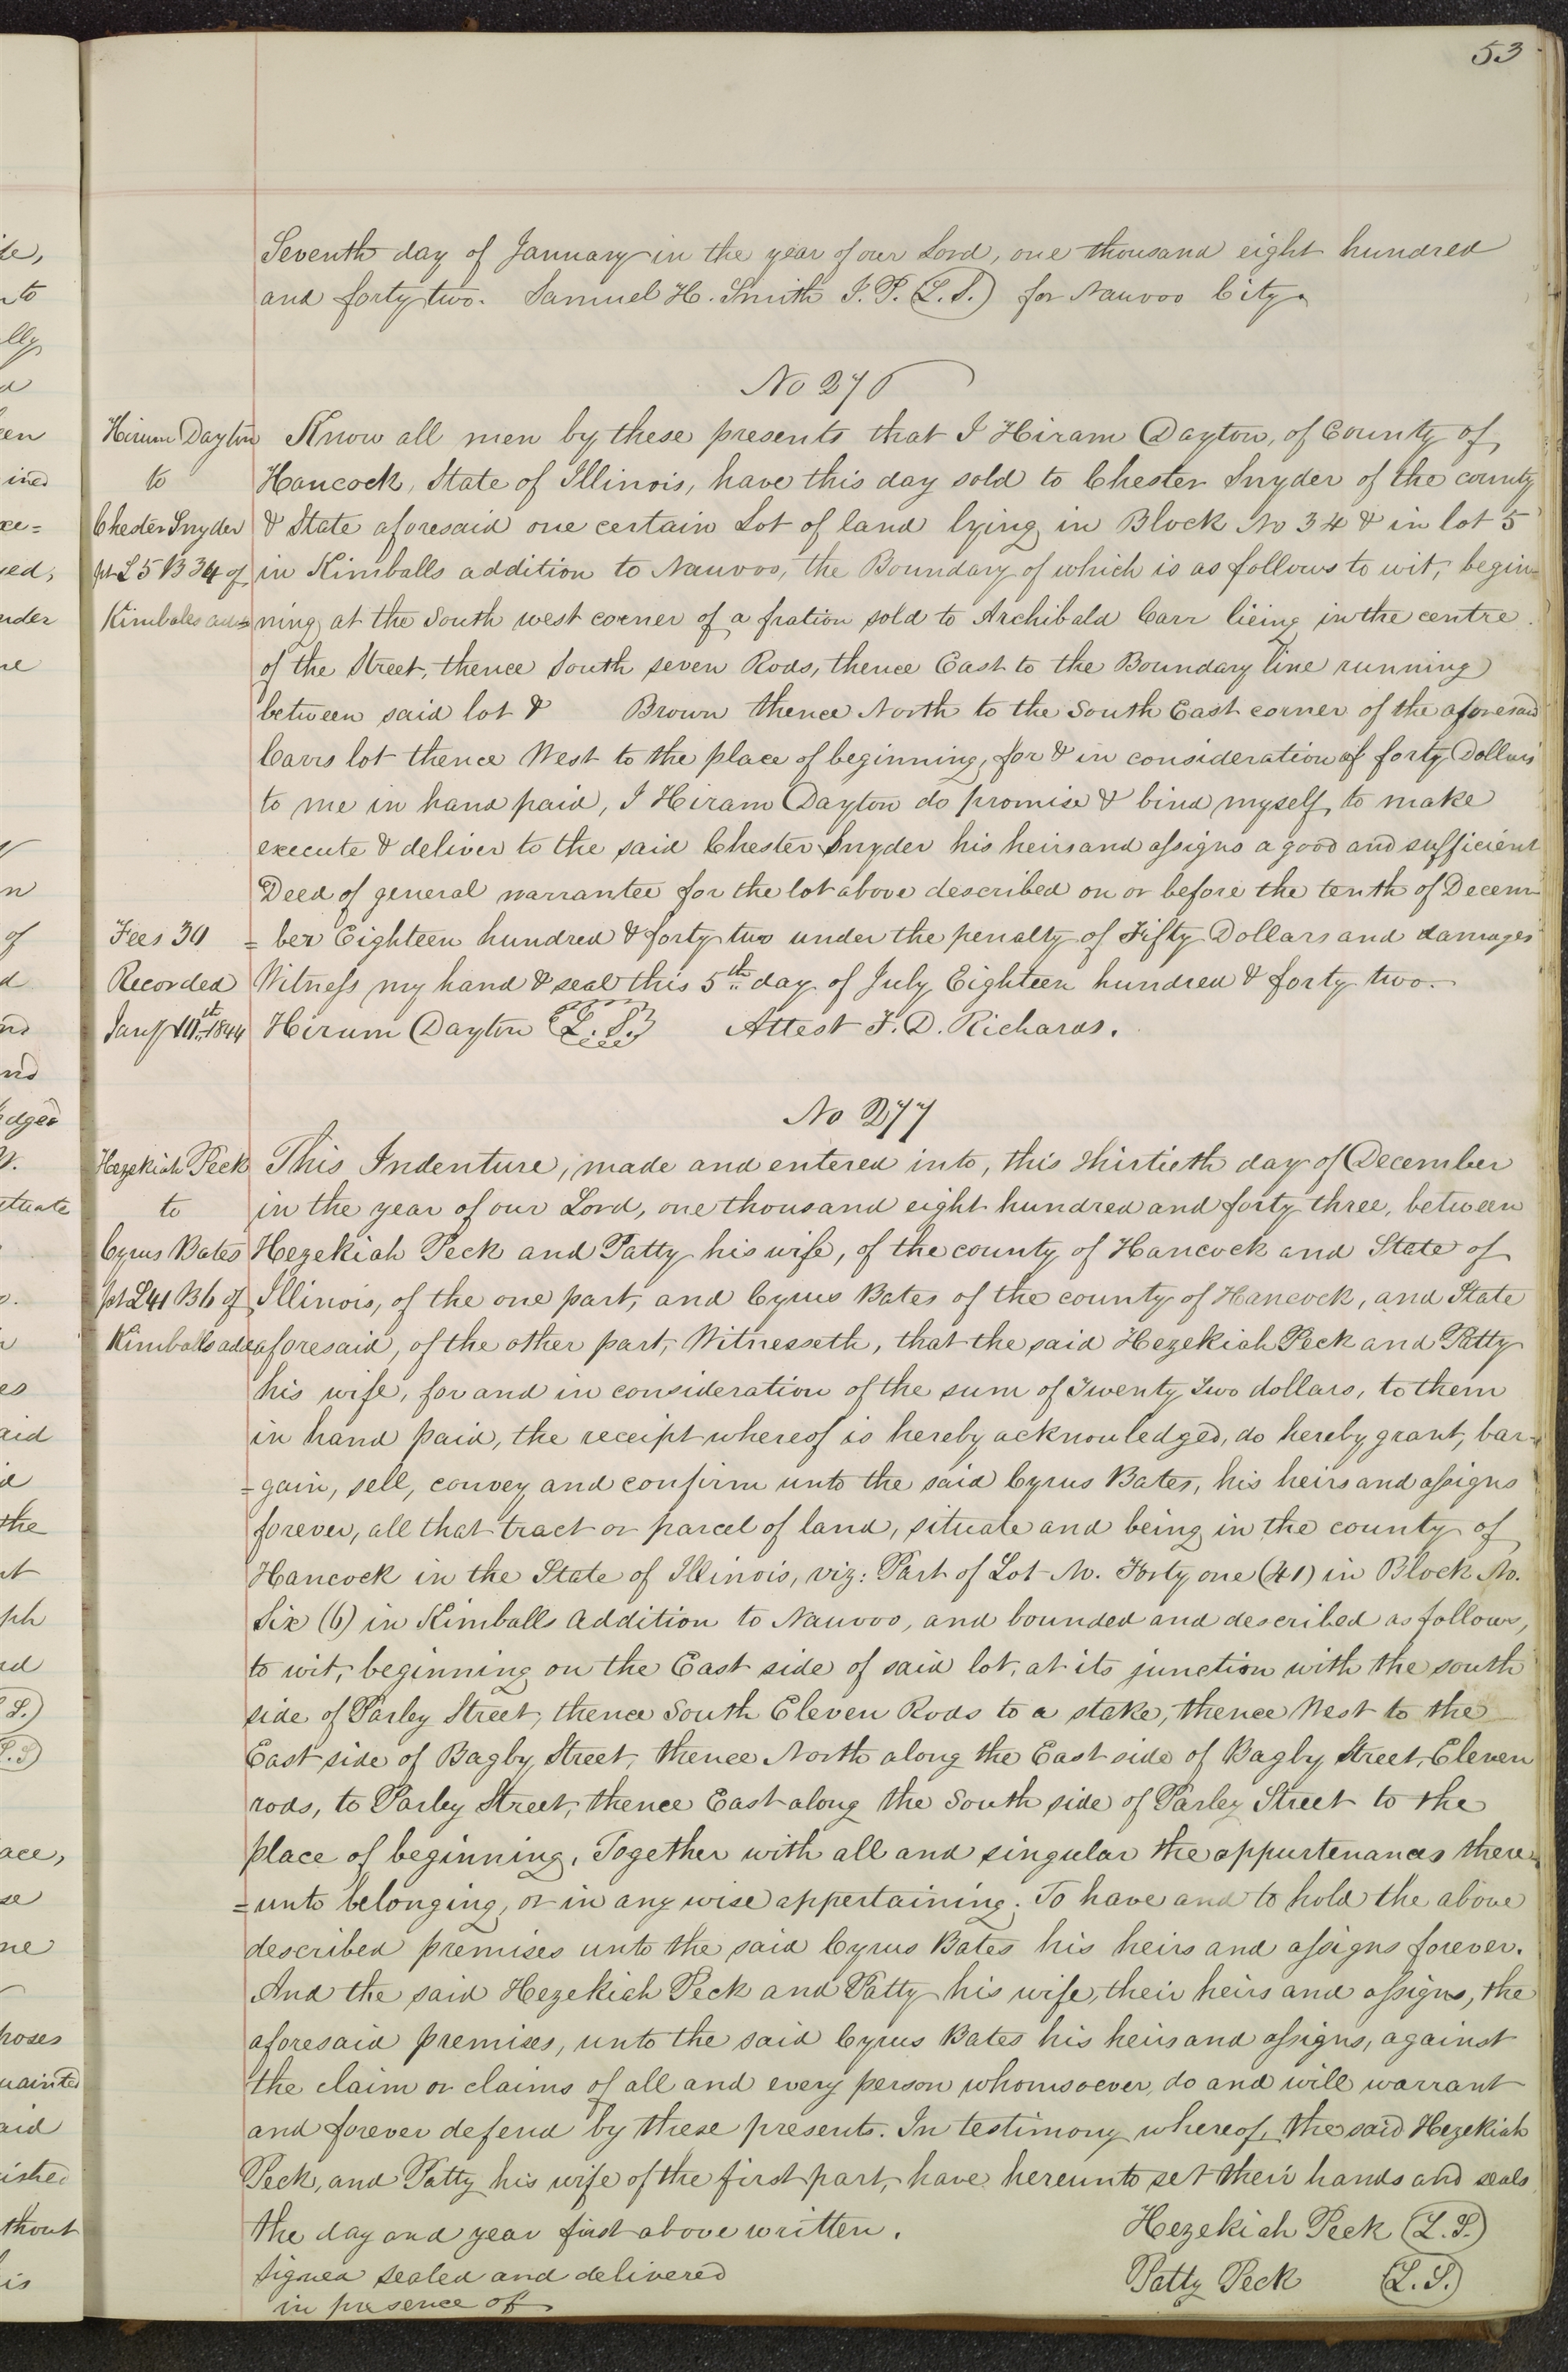 53
Seventh day of January in the year of our Lord, one thousand eight hundred
and forty two. Samuel H. Smith J. P. (L. S.) for Nauvoo City.
No 276
Hirum Dayton
to
Chester Snyder
pt L 5 B 34 of
Kimbales add
Know all men by these presents that I Hiram Dayton, of County of
Hancock, State of Illinois, have this day sold to Chester Snyder of the county
& State aforesaid one certain Lot of land lying in Block No 34 & in lot 5
in Kimballs addition to Nauvoo, the Boundary of which is as follows to wit, begin=
ning at the South west corner of a fration sold to Archibald Carr lieing in the centre
of the Street, thence South seven Rods, thence East to the Boundary line running
between said lot & Brown thence North to the South East corner of the aforesaid
Carrs lot thence West to the place of beginning, for & in consideration of forty Dollars
to me in hand paid, I Hiram Dayton do promise & bind myself to make
execute & deliver to the said Chester Snyder his heirs and assigns a good and sufficient
Deed of general warrantee for the lot above described on or before the tenth of Decem
= ber Eighteen hundred & forty two under the penalty of Fifty Dollars and damages
Witness my hand & seal this 5th day of July Eighteen hundred & forty two.
Hirum Dayton (L. S.) Attest F. D. Richards.
Fees 30
Recorded
Jany 10th 1844
No 277
Hezekiah Peck
to
Cyrus Bates
pt L 41 B 6 of
Kimballs add
This Indenture, made and entered into, this thirtieth day of December
in the year of our Lord, one thousand eight hundred and forty three, between
Hezekiah Peck and Patty his wife, of the county of Hancock and State of
Illinois, of the one part, and Cyrus Bates of the county of Hancock, and State
aforesaid, of the other part, Witnesseth, that the said Hezekiah Peck and Patty
his wife, for and in consideration of the sum of Twenty Two dollars, to them
in hand paid, the receipt whereof is hereby acknowledged, do hereby grant, bar=
=gain, sell, convey and confirm unto the said Cyrus Bates, his heirs and assigns
forever, all that tract or parcel of land, situate and being in the county of
Hancock in the State of Illinois, viz: Part of Lot No. Forty one (41) in Block No.
Six (6) in Kimballs Addition to Nauvoo, and bounded and described as follows,
to wit, beginning on the East side of said lot, at its junction with the south
side of Parley Street, thence South Eleven Rods to a stake, thence West to the
East side of Bagby Street, thence North along the East side of Bagby Street, Eleven
rods, to Parley Street, thence East along the South side of Parley Street to the
place of beginning. Together with all and singular the appurtenances there=
=unto belonging, or in any wise appertaining. To have and to hold the above
described premises unto the said Cyrus Bates his heirs and assigns forever.
And the said Hezekiah Peck and Patty his wife, their heirs and assigns, the
aforesaid premises, unto the said Cyrus Bates his heirs and assigns, against
the claim or claims of all and every person whomsoever, do and will warrant
and forever defend by these presents. In testimony whereof, the said Hezekiah
Peck, and Patty his wife of the first part, have hereunto set their hands and seals
the day and year first above written. Hezekiah Peck (L. S.)
Signed sealed and delivered Patty Peck (L. S.)
in presence of